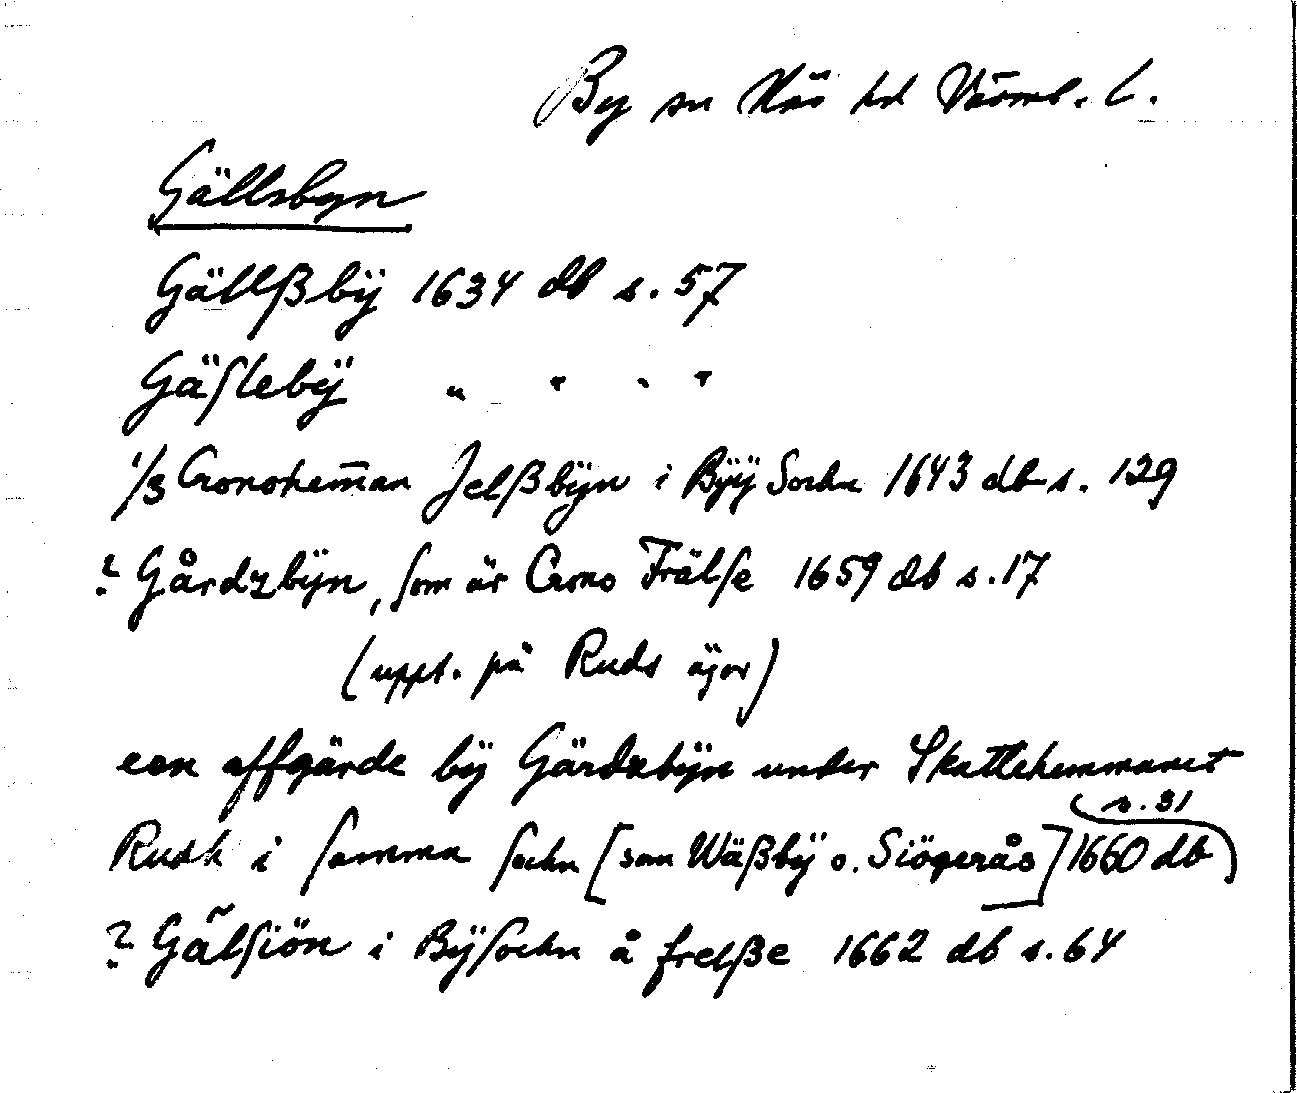 By sn Näs hd Värml. l.
Gällsbyn
Gällßbÿ 1634 db s. 57
Gäſlebÿ " " " "
1/3 Cronohem̅an Jelßbÿn i Bÿÿ Sochn 1643 db s. 129
? Gårdzbÿn, ſom är Crono Frälſe 1659 db s. 17
(uppt. på Ruds äjor)
een affgärde bÿ Gärdzbÿn under Skattehemmanet
Rudh i ſamma ſochn [som Wäßbÿ o. Siögerås] 1660 db
s. 31
? Gålſiön i Bÿſochn å frelße 1662 db s. 64